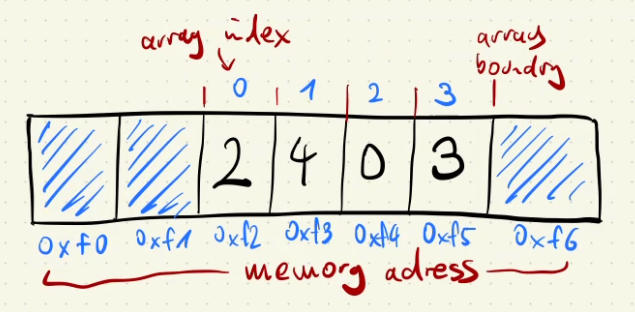 array index
array
boundry
0 1 2 3
2 4 0 3
0xf0 0xf1 0xf2 0xf3 0xf4 0xf5 0xf6
memory adress